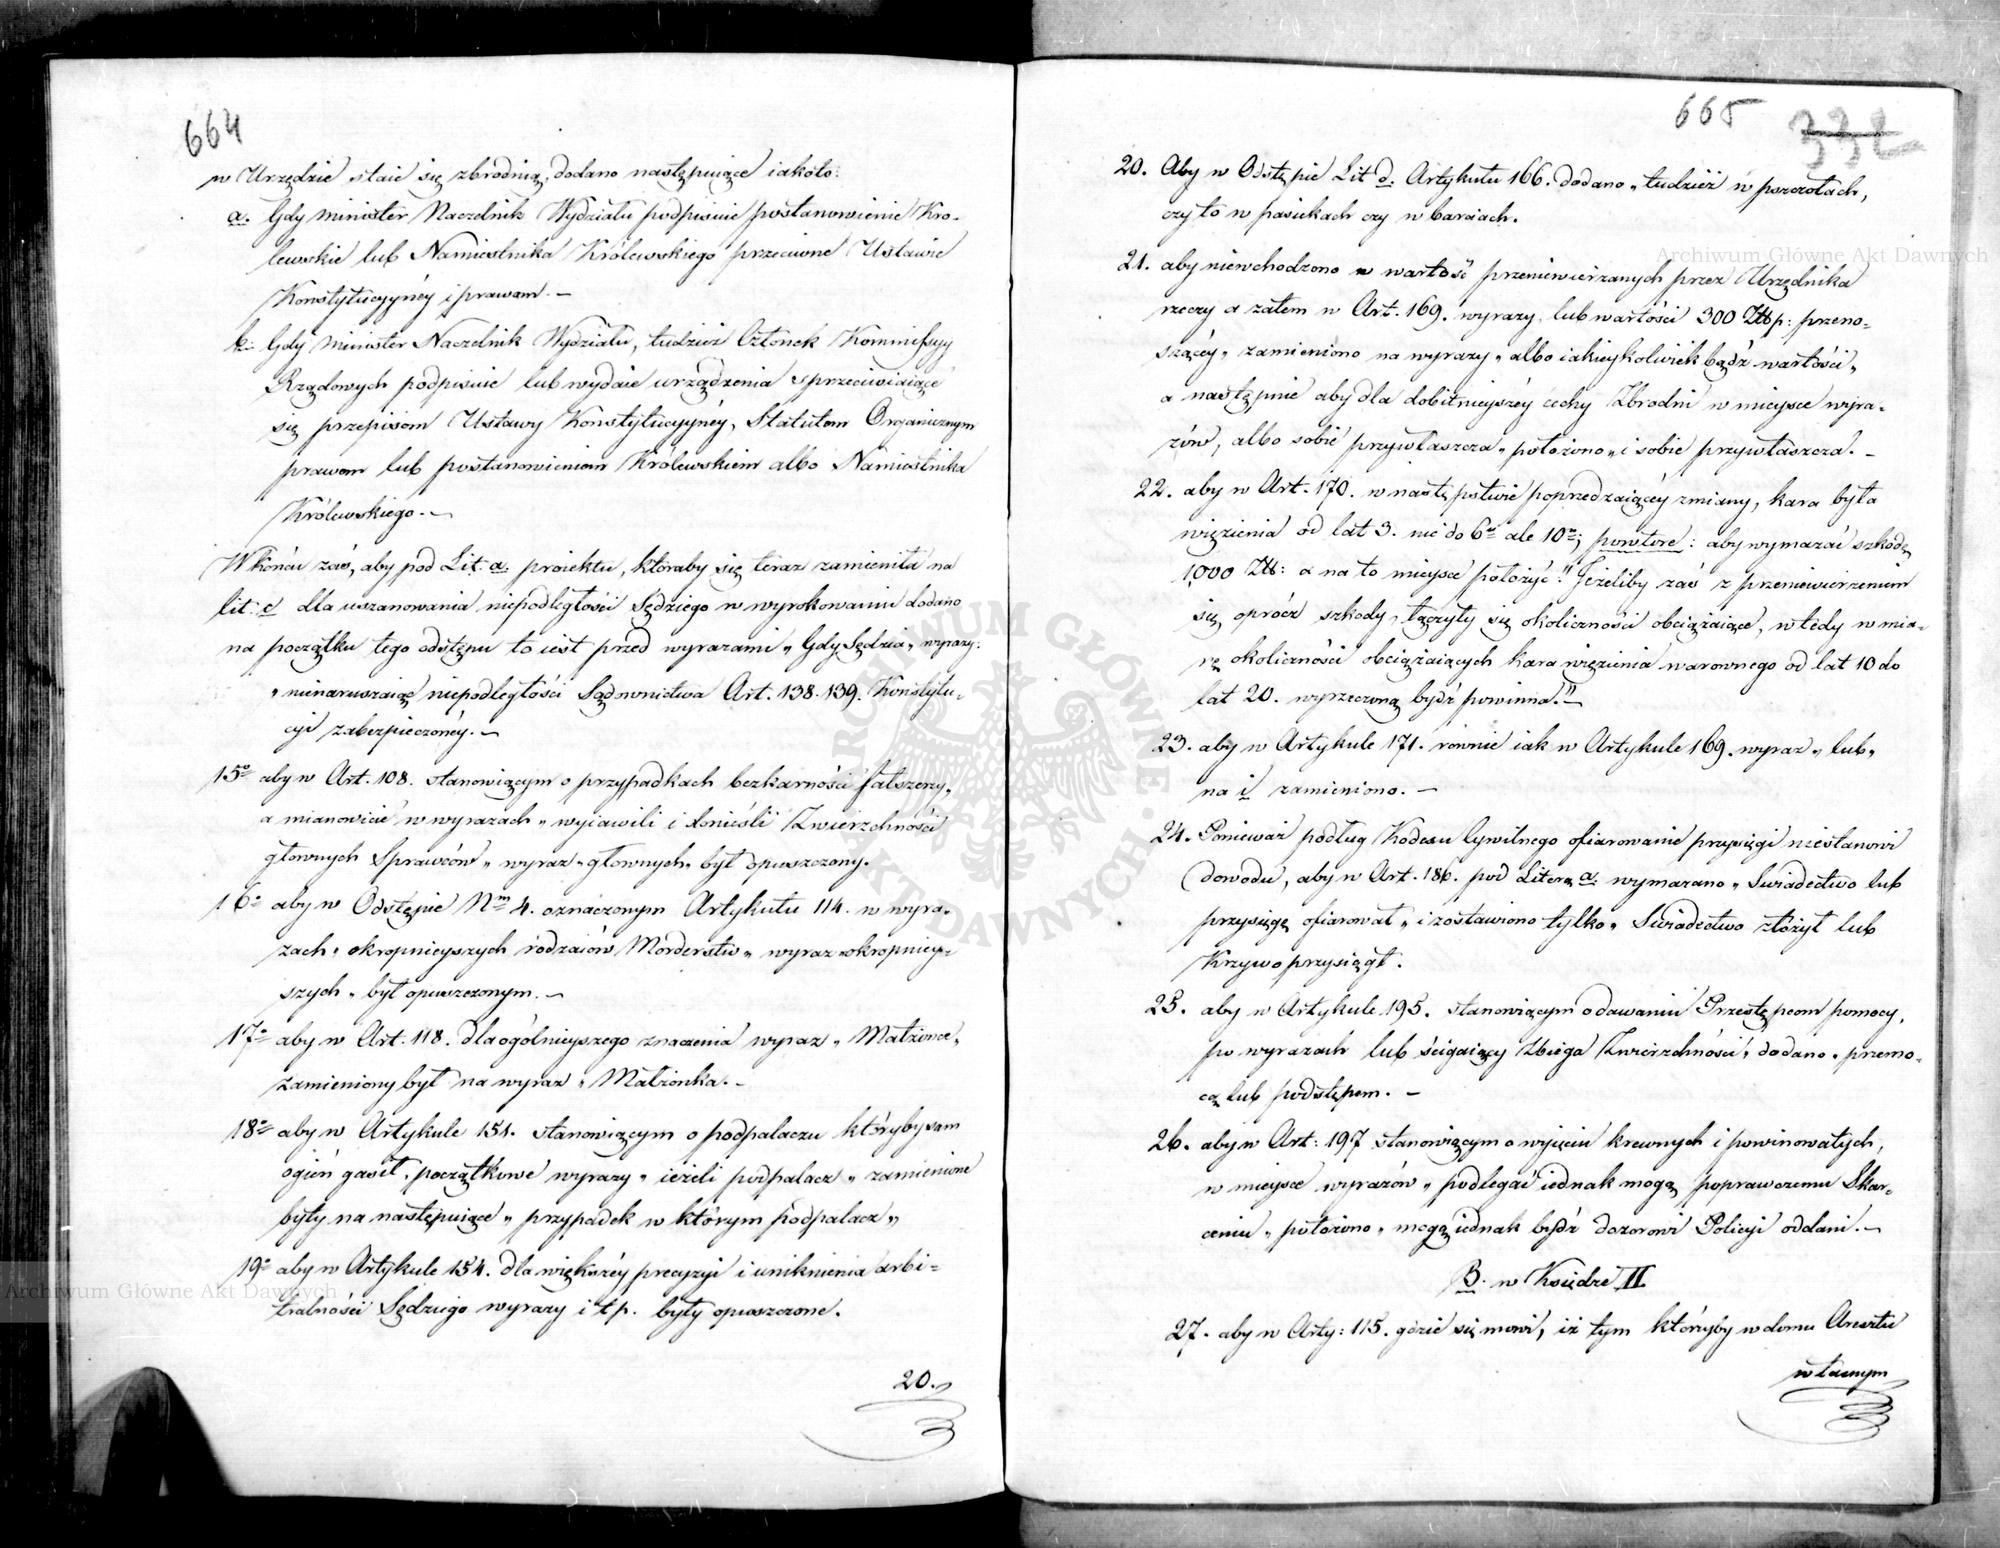 664
w Urzędzie staie się zbrodnią, dodano następuiące iakoto:
a. Gdy Minister Naczelnik Wydziału podpisuie postanowienie Kro-
lewskie lub Namiestnika Królewskiego przeciwne Ustawie
Konstytucyynéy i prawom. –
b. Gdy Minister Naczelnik Wydziału, tudzież Członek Kommissyy
Rządowych podpisuie lub wydaie urządzenia sprzeciwiaiące
się przepisom Ustawy Konstytucyynéy, Statutom Organicznym
prawom lub postanowieniom Królewskiem albo Namiestnika
Królewskiego. –
W końcu zaś, aby pod Lit. a. proiektu, któraby się teraz zamieniła na
lit. c dla uszanowania niepodległości Sędziego w wyrokowaniu dodano
na początku tego odstępu to iest przed wyrazami „ Gdy Sędzia „ wyrazy:
„ nienaruszaiąc niepodległości Sądownictwa Art. 138. 139. Konstytu-
cyi zabezpieczonéy. –
15o aby w Art. 108. stanowiącym o przypadkach bezkarności fałszerzy,
a mianowicie w wyrazach „ wyiawili i donieśli Zwierzchności
głownych Sprawców „ wyraz „ głownych „ był opuszczony.
16o aby w Odstępie Nm 4. oznaczonym Artykułu 114. w wyra-
zach „ okropnieyszych rodzaiów Morderstw „ wyraz „ okropniey-
szych „ był opuszczonym. –
17o aby w Art: 118. dla ogólnieyszego znaczenia wyraz „ Małżonce „
zamieniony był na wyraz „ Małżonka. –
18o aby w Artykule 151. stanowiącym o podpalaczu któryby sam
ogień gasił, początkowe wyrazy „ ieżeli podpalacz „ zamienione
były na następuiące „ przypadek w którym podpalacz „
19o aby w Artykule 154. dla większéy precyzyi i uniknienia arbi-
tralności Sędziego wyrazy i t p. były opuszczone.
20.
665 332
20. Aby w Odstępie Lit d. Artykułu 166. dodano „ tudzież w pszczołach,
czy to w pasiekach czy w barciach.
21. aby niewchodzono w wartość przeniewierzanych przez Urzędnika
rzeczy a zatem w Art. 169. wyrazy lub wartości 300 Złłp: przeno-
szącéy „ zamieniono na wyrazy „ albo iakieykolwiek bądź wartości „
a następnie aby dla dobitnieyszéy cechy Zbrodni w mieysce wyra-
zów, albo sobie przywłaszcza „ położono „ i sobie przywłaszcza. –
22. aby w Art. 170. w następstwie poprzedzaiącéy zmiany, kara była
więzienia od lat 3. nie do 6u ale 10u; powtore: aby wymazać szkodę
1,000 Złł: a na to mieysce położyć „ Jeżeliby zaś z przeniewierzeniem
się oprócz szkody, łączyły się okoliczności obciążaiące, wtedy w mia-
rę okoliczności obciążaiących kara więzienia warownego od lat 10 do
lat 20. wyrzeczoną bydź powinna." –
23. aby w Artykule 171. równie iak w Artykule 169. wyraz „ lub „
na i zamieniono. –
24. Ponieważ podług Kodexu Cywilnego ofiarowanie przysięgi niestanowi
dowodu, aby w Art. 186. pod Literą a. wymazano „ Swiadectwo lub
przysięgę ofiarował „ i zostawiono tylko „ Swiadectwo złożył lub
Krzywoprzysiągł.
25. aby w Artykule 195. stanowiącym o dawaniu Przestępcom pomocy,
po wyrazach lub ścigaiący Zbiega Zwierzchności „ dodano „ przemo-
cą lub podstępem. –
26. aby w Art: 197 stanowiącym o wyięciu krewnych i powinowatych,
w mieysce wyrazów „ podlegać iednak mogą poprawczemu Skar-
ceniu „ położono „ mogą iednak bydź dozorowi Policyi oddani. –
B. w Księdze II
27. aby w Arty: 115. gdzie się mowi, iż tym któryby w domu Aresztu
własnym
Archiwum Główne Akt Dawnych
Archiwum Główne Akt Dawnych
ARCHIWUM GŁÓWNE AKT DAWNYCH